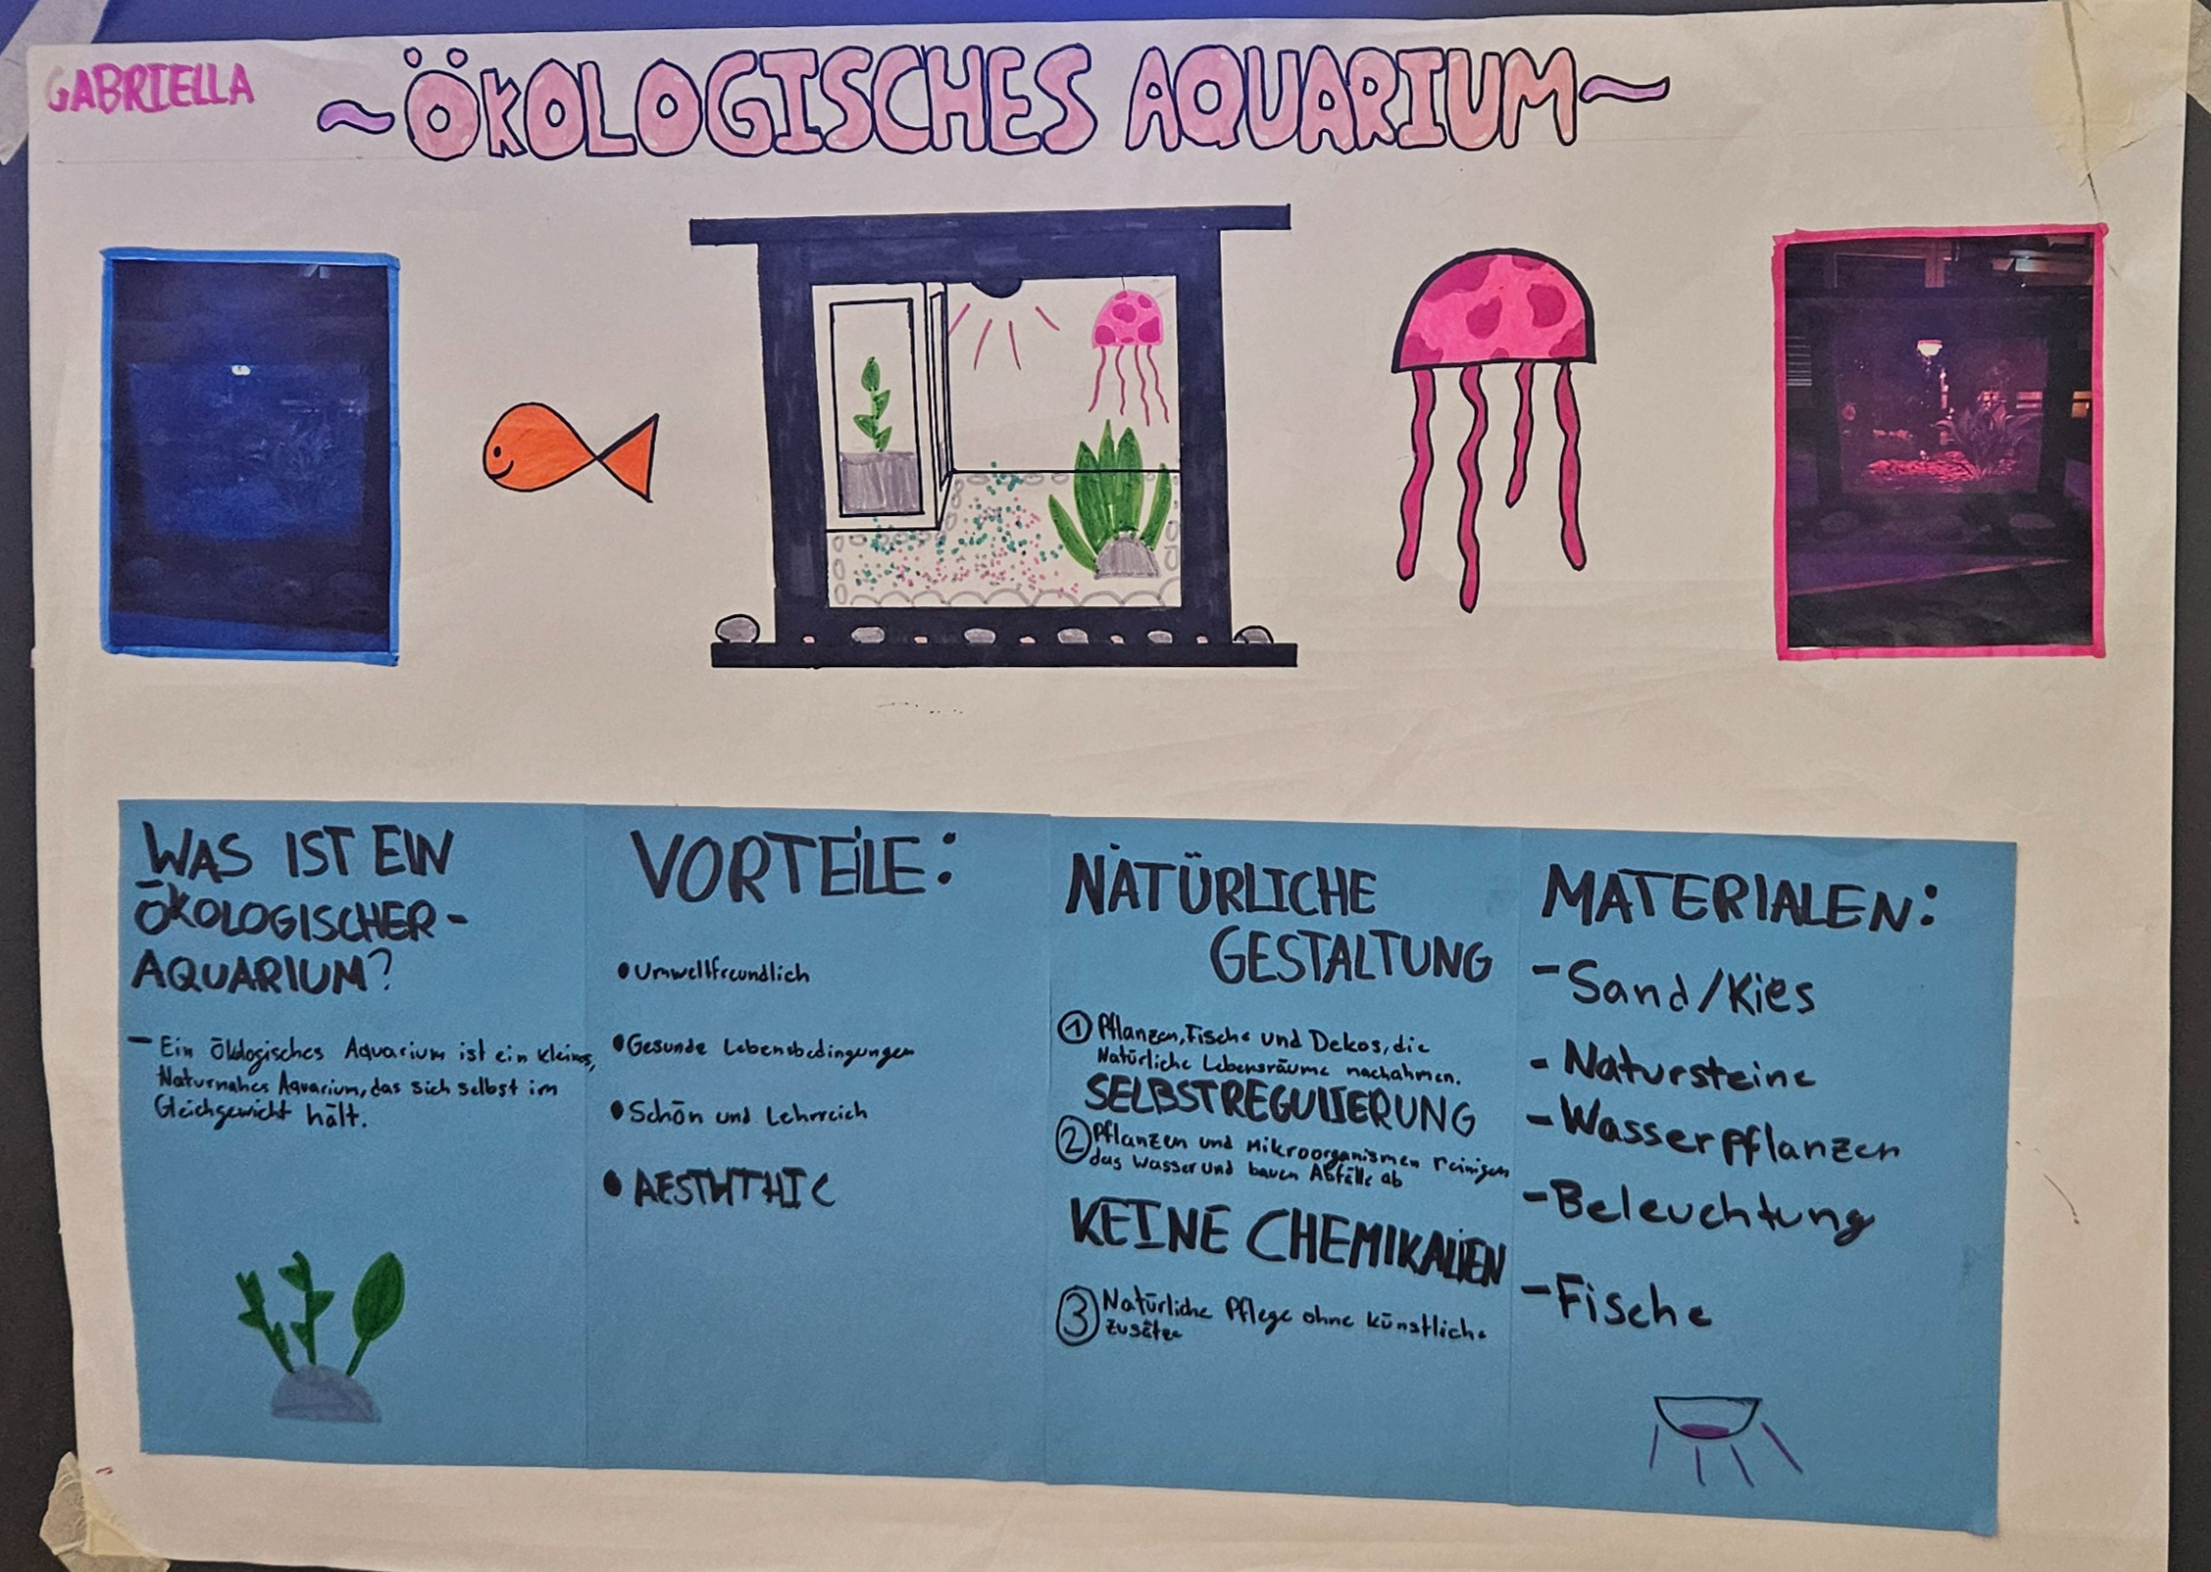 GABRIELLA
~ÖKOLOGISCHES AQUARIUM~
WAS IST EIN
ÖKOLOGISCHER-
AQUARIUM?
- Ein ökologisches Aquarium ist ein kleines,
Naturnahes Aquarium, das sich selbst im
Gleichgewicht hält.
VORTEILE:
• Umweltfreundlich
• Gesunde Lebensbedingungen
• Schön und Lehrreich
• AESTHTHIC
NATÜRLICHE
GESTALTUNG
① Pflanzen, Fische und Dekos, die
Natürliche Lebensräume nachahmen.
SELBSTREGULIERUNG
② Pflanzen und Mikroorganismen reinigen
das Wasser und bauen Abfälle ab
KEINE CHEMIKALIEN
③ Natürliche Pflege ohne künstliche
Zusätze
MATERIALEN:
- Sand/Kies
- Natursteine
- Wasserpflanzen
- Beleuchtung
- Fische